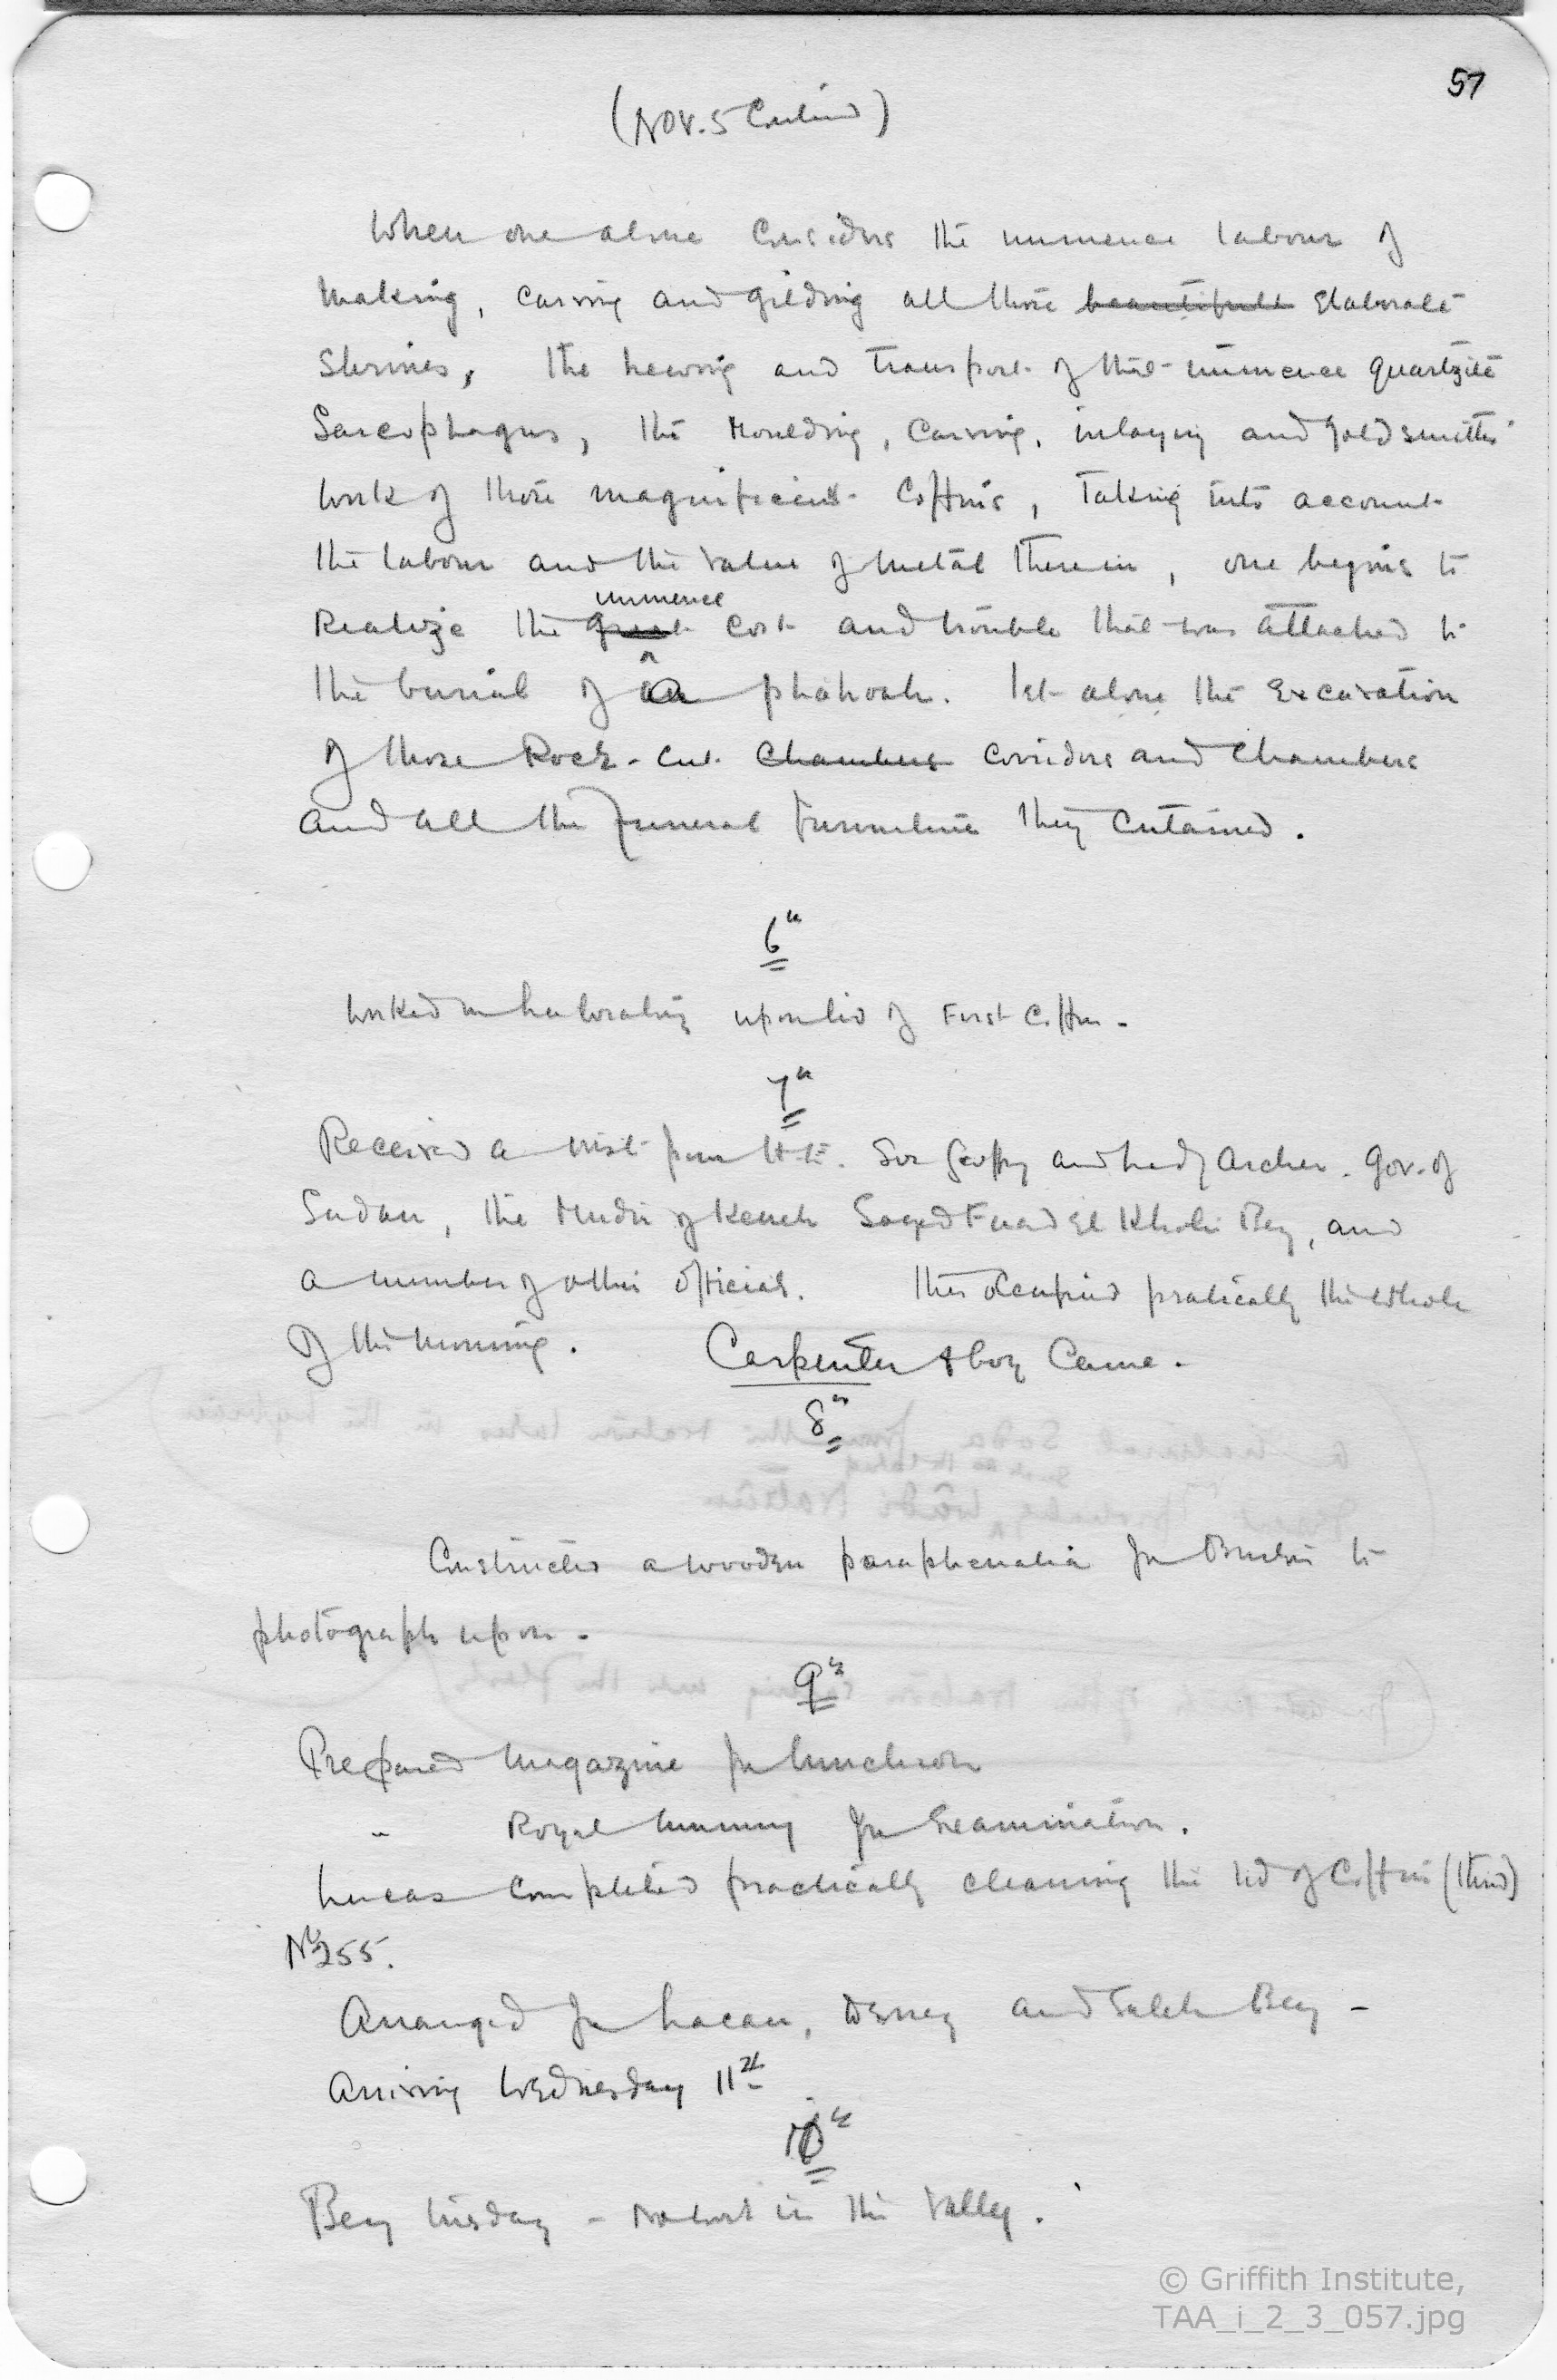 57
(Nov. 5 Continued)
When one alone considers the immence labour of
making, carving and gilding all those beautifull elaborate
shrines, the hewing and transport of that immence quartzite
Sarcophagus, the moulding, carving, inlaying and goldsmiths'
work of those magnificent coffins, taking into account
the labour and the value of metal therein, one begins to
immence
Realize the great cost and trouble that was attached to
the burial of a phahroah. let alone the excavation
of those Rock-cut chambers corridors and chambers
and all the funeral furniture they contained.
6th
Worked in Laboratory upon lid of First Coffin -
7th
Received a visit from H.E. Sir Geoffry and Lady Archer. Gov. of
Sudan, the Mudir of Keneh Sayed Fuad El Kholi Bey, and
a number of other officials. This occupied pratically the whole
of the morning. Carpenter & boy Came.
8th
Constructed a wooden paraphenalia for Burton to
photograph upon.
9th
Prepared Magazine for luncheon
" Royal Mummy for Examination.
Lucas completed practically cleaning the lid of Coffin (third)
No 255.
Arranged for Lacau, Derry and Saleh Bey -
Arriving Wednesday 11th
10th
Being Tuesday - no work in the Valley.
© Griffith Institute,
TAA_i_2_3_057.jpg